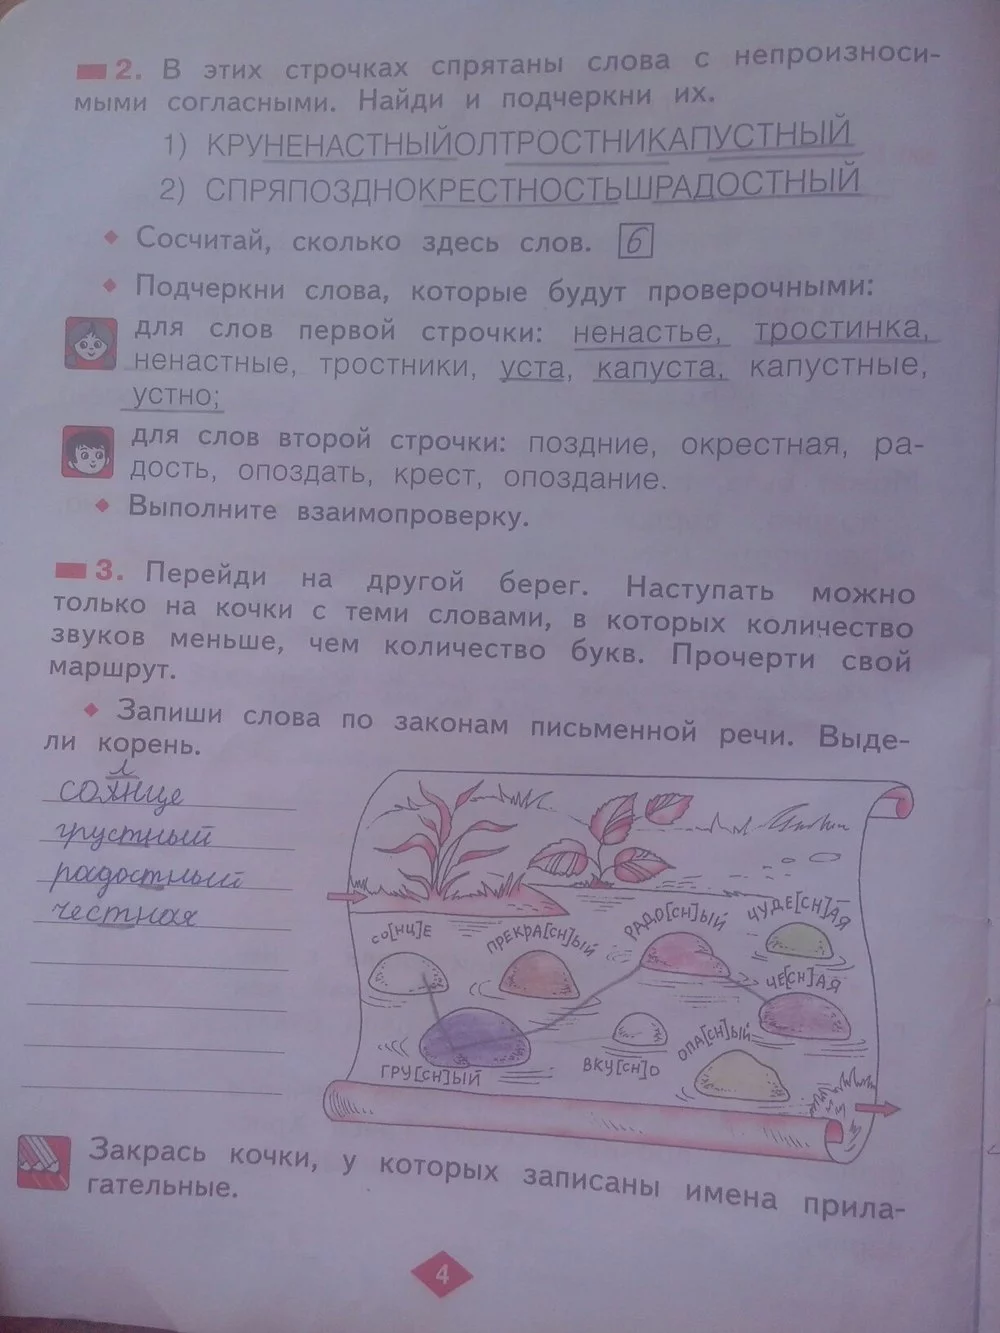 2. В этих строчках спрятаны слова с непроизноси-
мыми согласными. Найди и подчеркни их.
1) КРУНЕНАСТНЫЙОЛТРОСТНИКАПУСТНЫЙ
2) СПРЯПОЗДНОКРЕСТНОСТЬШРАДОСТНЫЙ
Сосчитай, сколько здесь слов. 6
Подчеркни слова, которые будут проверочными:
для слов первой строчки: ненастье, тростинка,
ненастные, тростники, уста, капуста, капустные,
устно;
для слов второй строчки: поздние, окрестная, ра-
дость, опоздать, крест, опоздание.
Выполните взаимопроверку.
3. Перейди на другой берег. Наступать можно
только на кочки с теми словами, в которых количество
звуков меньше, чем количество букв. Прочерти свой
маршрут.
Запиши слова по законам письменной речи. Выде-
ли корень.
л
солнце
грустный
радостный
честная
СО[НЦ]Е
ПРЕКРА[СН]ЫЙ
РАДО[СН]ЫЙ
ЧУДЕ[СН]АЯ
ЧЕ[СН]АЯ
ГРУ[СН]ЫЙ
ВКУ[СН]О
ОПА[СН]ЫЙ
Закрась кочки, у которых записаны имена прила-
гательные.
4